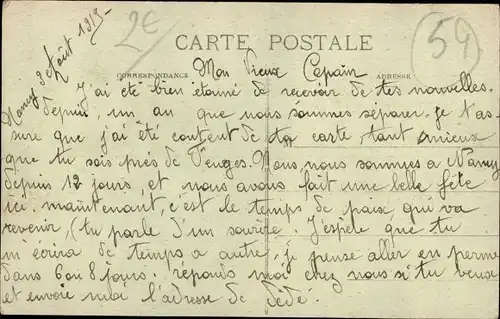 Nancy 3 Août 1919-
2€
59
CARTE POSTALE
CORRESPONDANCE
ADRESSE
Mon Vieux Copain
J'ai été bien étonné de recevoir de tes nouvelles.
depuis, un an que nous sommes séparer. Je t'as-
sure que j'ai été content de ta carte, tant mieux
que tu sois près de Vouges. Nous nous sommes a Nancy
depuis 12 jours, et nous avons fait une belle fête
ici. maintenant, c'est le temps de paix qui va
revenir, (tu parle d'un sourire. J'espete que tu
m'écrira de temps a autre, je pense aller en perme
dans 6 ou 8 jours. reponds moi chez nous si tu veux
et envoie moi l'adresse de Dédé.